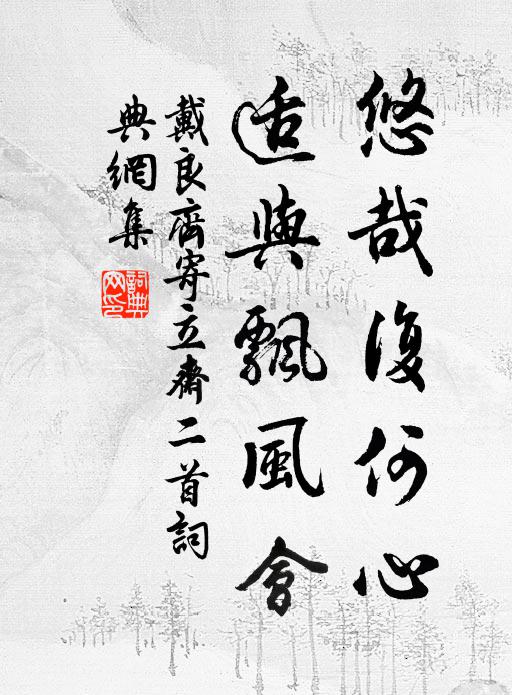 悠哉復何心
適與飄風會
戴良齊寄立齋二首詞
典網集
詞典
网印